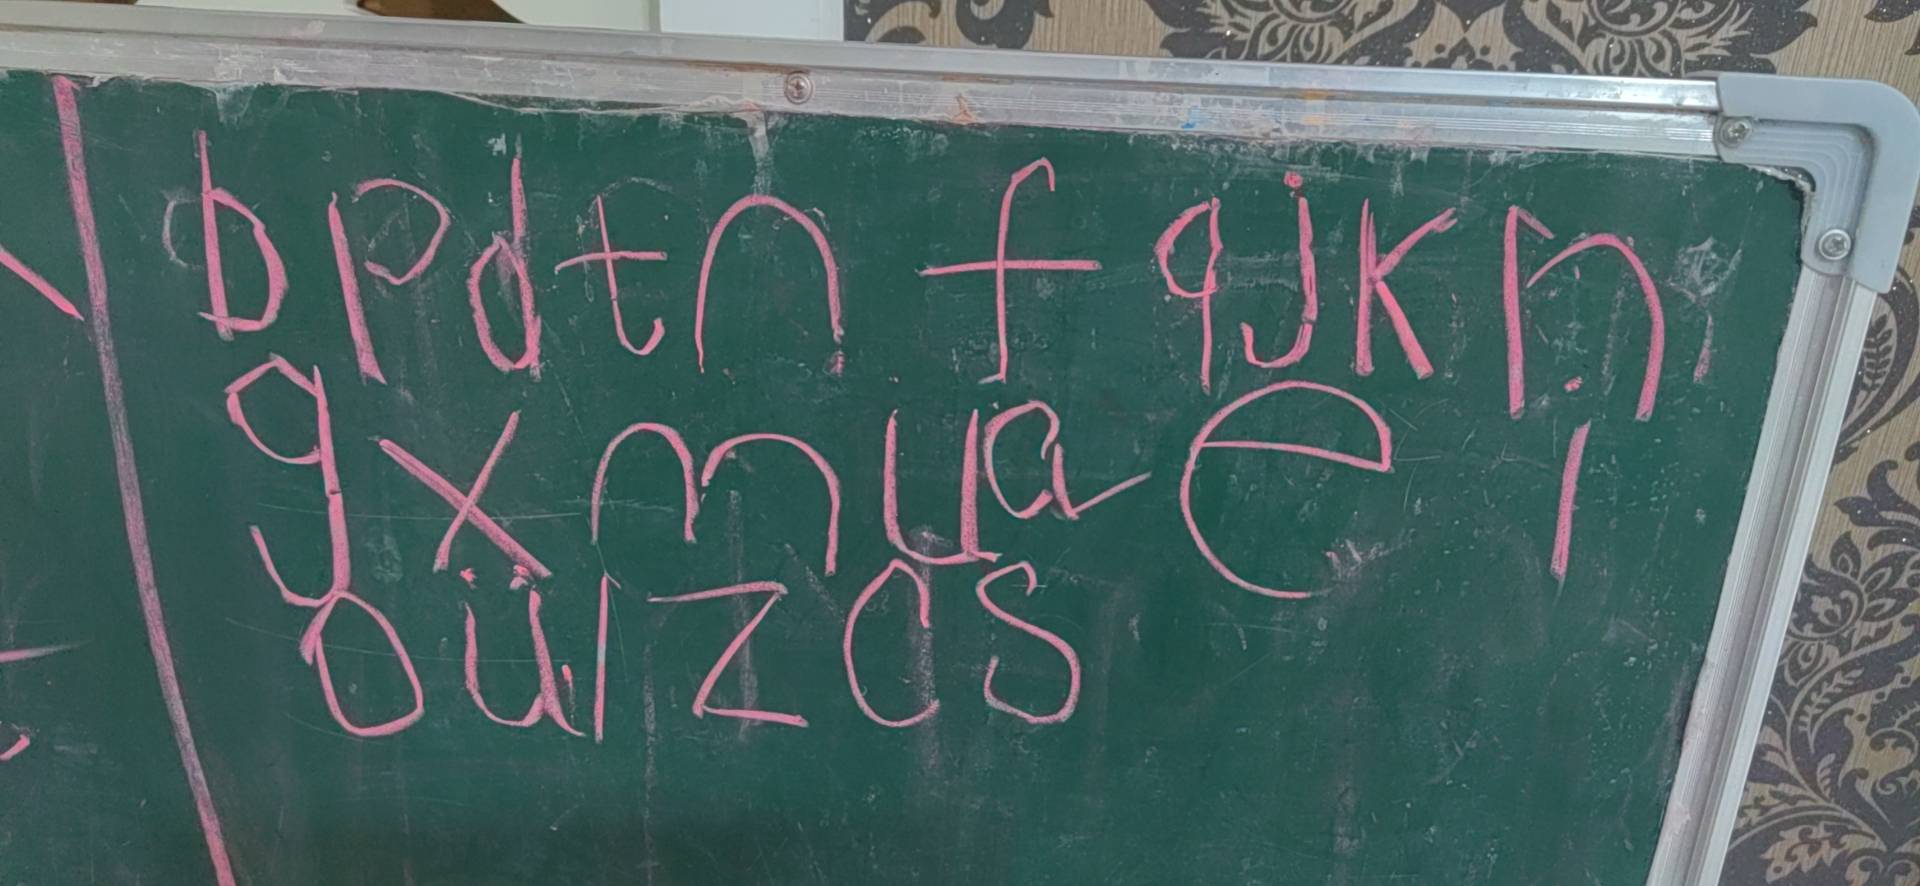 b p d t n f q j k n
g x m u a e i
o ü l z c s